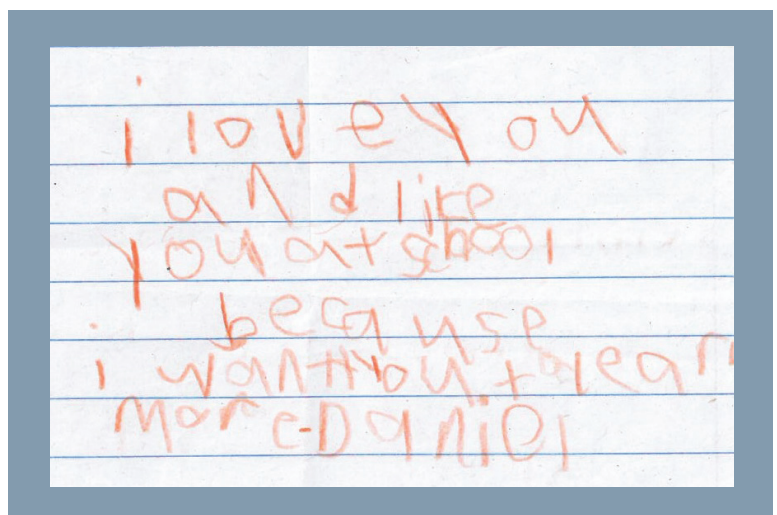 i love you
and like
you at school
because
i want you to lear
more-Daniel